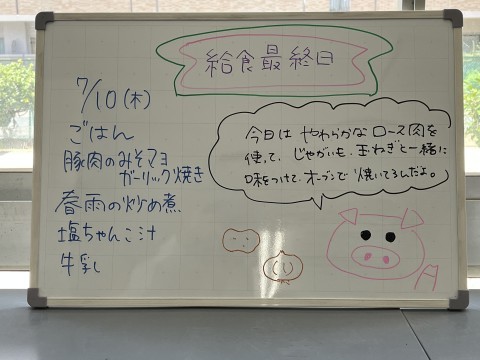 給食最終日
7/10(木)
ごはん
豚肉のみそマヨ
ガーリック焼き
春雨の炒め煮
塩ちゃんこ汁
牛乳
今日は やわらかな ロース肉を
使って、じゃがいも、玉ねぎと一緒に
味をつけて、オーブンで 焼いてるんだよ。